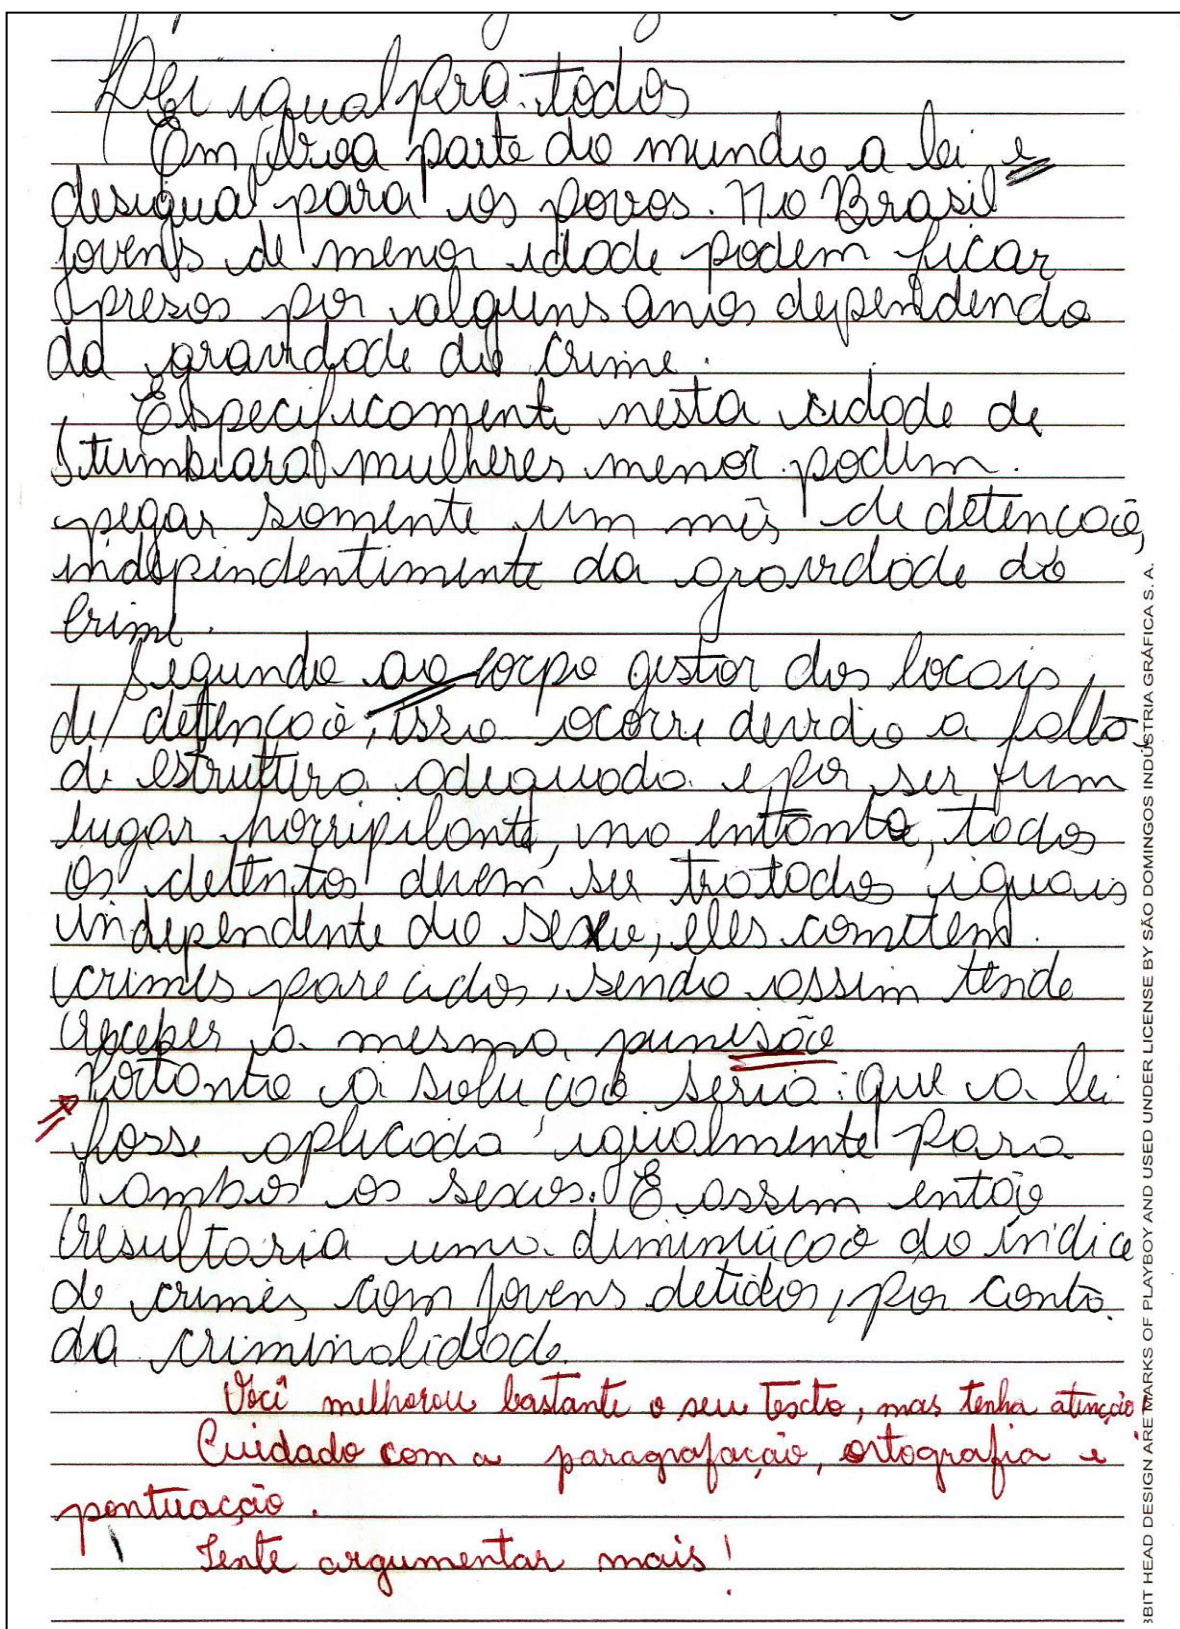 Lei igual para todos
Em boa parte do mundo a lei e
desigual para os povos. No Brasil
jovens de menor idade podem ficar
presos por alguns anos dependendo
da gravidade do crime.
Especificamente nesta cidade de
Itumbiara mulheres menor podem
pegar somente um mês de detencaõ,
independentimente da gravidade do
crime.
Segundo ao corpo gestor dos locais
de detencaõ, isso ocorre devido a falta
de estrutura adequada e por ser um
lugar horripilante, no entanto, todos
os detentos devem ser tratados iguais
independente do sexo, eles cometem
crimes parecidos, sendo assim tende
receber a mesma punisão
Portanto a solucaõ seria: que a lei
fosse aplicada igualmente para
ambos os sexos. E assim então
resultaria uma diminuicaõ do índice
de crimes com jovens detidos, por conta
da criminalidade
Você melhorou bastante o seu texto, mas tenha atenção!
Cuidado com a paragrafação, ortografia e
pontuação.
Tente argumentar mais!
BBIT HEAD DESIGN ARE MARKS OF PLAYBOY AND USED UNDER LICENSE BY SÃO DOMINGOS INDÚSTRIA GRÁFICA S. A.